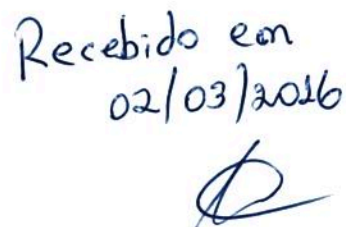 Recebido em
02/03/2016